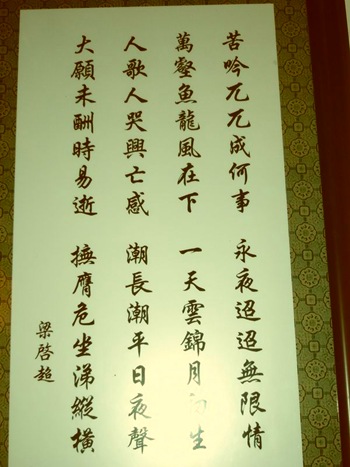 苦吟兀兀成何事 永夜迢迢無限情
萬壑魚龍風在下 一天雲錦月生
人歌人哭興亡感 潮長潮平日夜聲
大願未酬時易逝 撫膺危坐涕縱橫
梁啓超